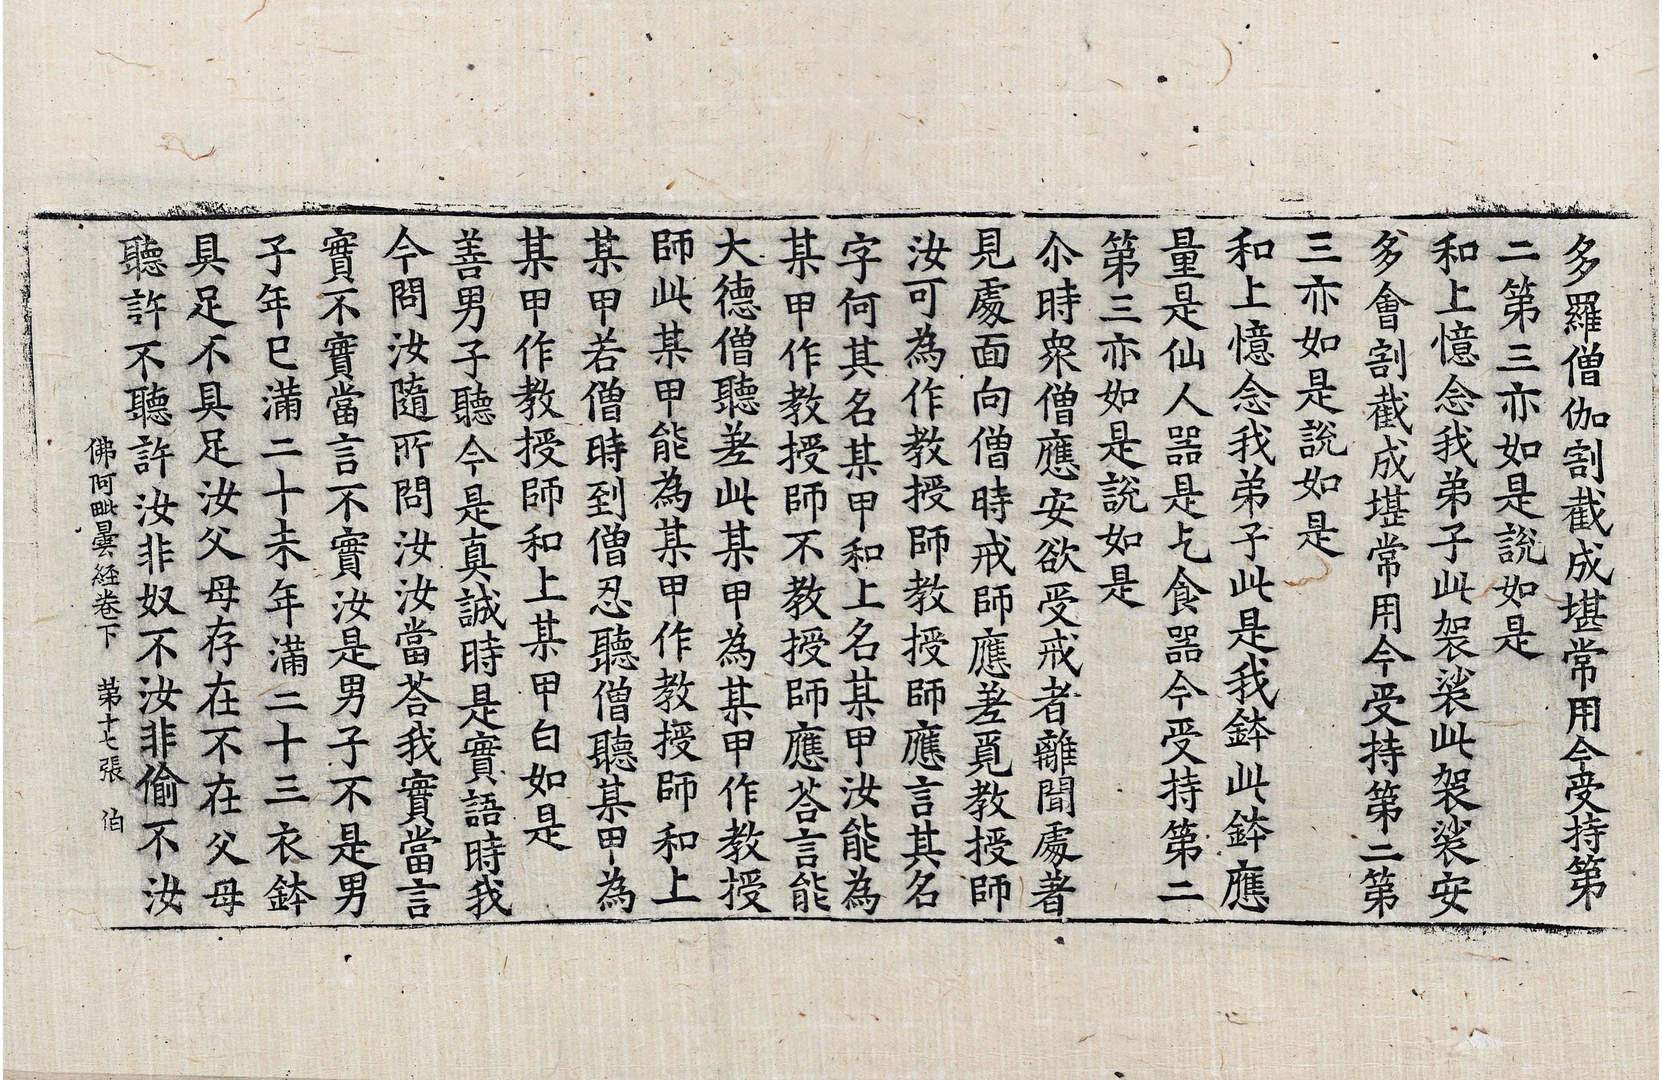 多羅僧伽割截成堪常用今受持第
二第三亦如是說如是
和上憶念我弟子此袈裟此袈裟安
多會割截成堪常用今受持第二第
三亦如是說如是
和上憶念我弟子此是我鉢此鉢應
量是仙人器是乞食器今受持第二
第三亦如是說如是
尒時衆僧應安欲受戒者離聞處著
見處面向僧時戒師應差覓教授師
汝可為作教授師教授師應言其名
字何其名某甲和上名某甲汝能為
某甲作教授師不教授師應荅言能
大德僧聽差此某甲為某甲作教授
師此某甲能為某甲作教授師和上
某甲若僧時到僧忍聽僧聽某甲為
某甲作教授師和上某甲白如是
善男子聽今是真誠時是實語時我
今問汝隨所問汝汝當荅我實當言
實不實當言不實汝是男子不是男
子年已滿二十未年滿二十三衣鉢
具足不具足汝父母存在不在父母
聽許不聽許汝非奴不汝非偷不汝
佛阿毗曇経卷下 第十七張 伯